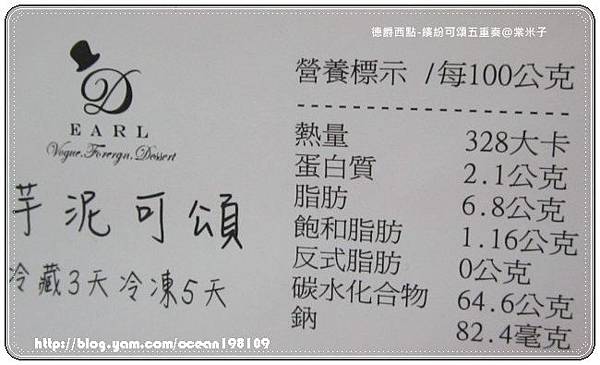 德爵西點-繽紛可頌五重奏@棠米子
D
EARL
Vogue.Foreign.Dessert
芋泥可頌
冷藏3天冷凍5天
營養標示 /每100公克
熱量 328大卡
蛋白質 2.1公克
脂肪 6.8公克
飽和脂肪 1.16公克
反式脂肪 0公克
碳水化合物 64.6公克
鈉 82.4毫克
https://blog.yam.com/ocean198109